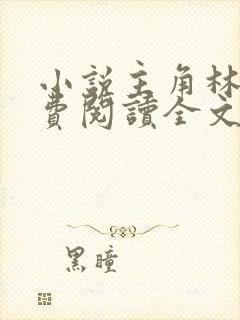 小說主角林
費閱讀全文
黑瞳